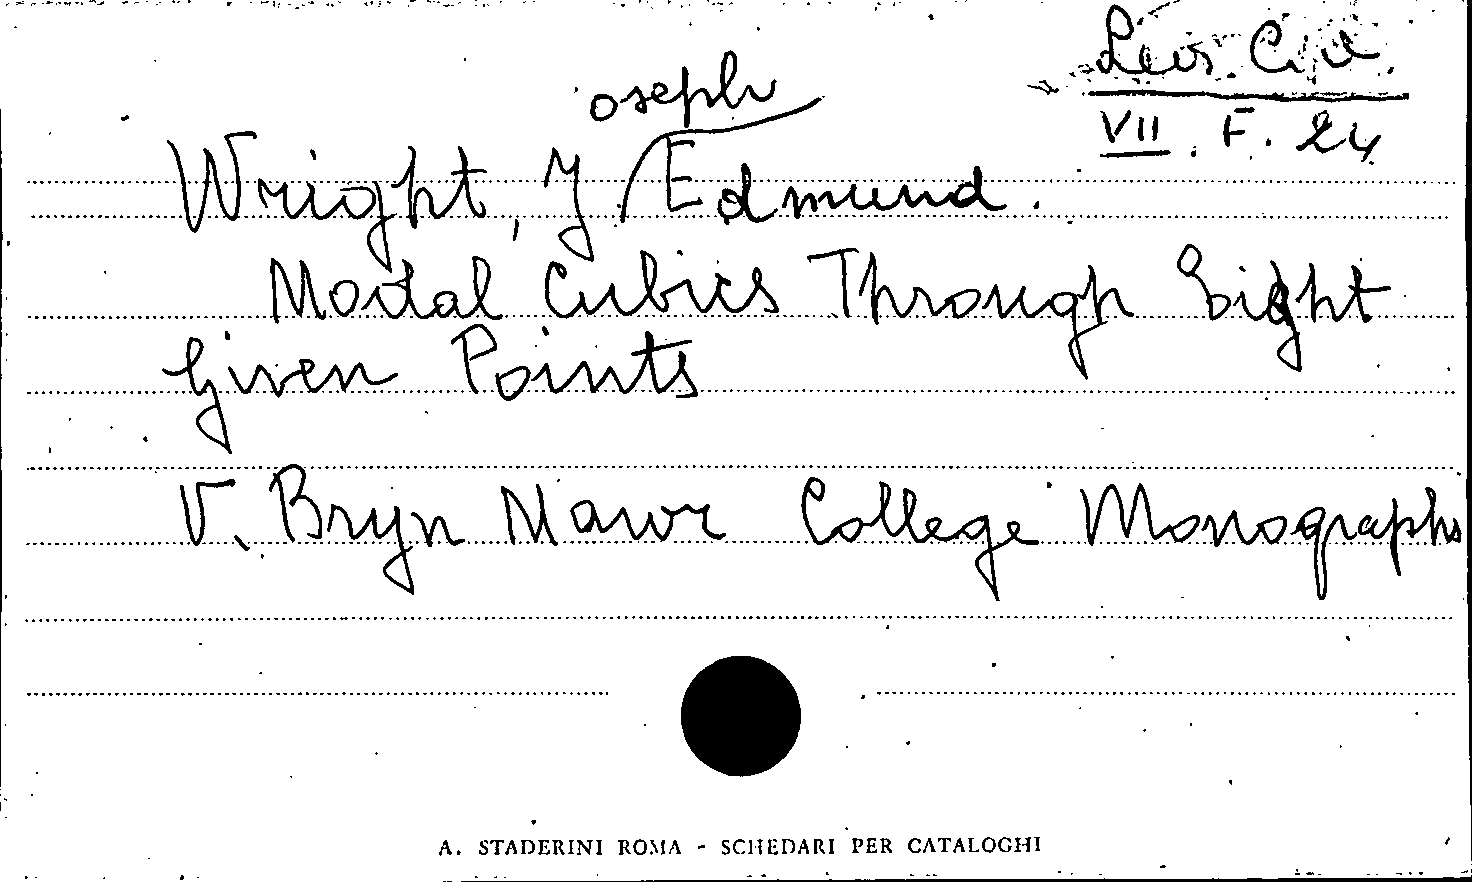 Lev. Civ.
VII. F. 24
Wright, Joseph Edmund.
Nodal Cubics Through Eight
Given Points
V. Bryn Mawr College Monographs
A. STADERINI ROMA - SCHEDARI PER CATALOGHI